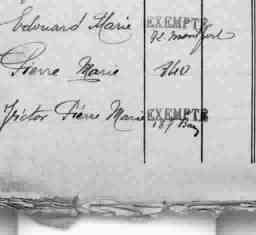 Edouard Marie EXEMPTÉ
Pl. Montfort
Pierre Marie
Victor Pierre Marie EXEMPTÉ